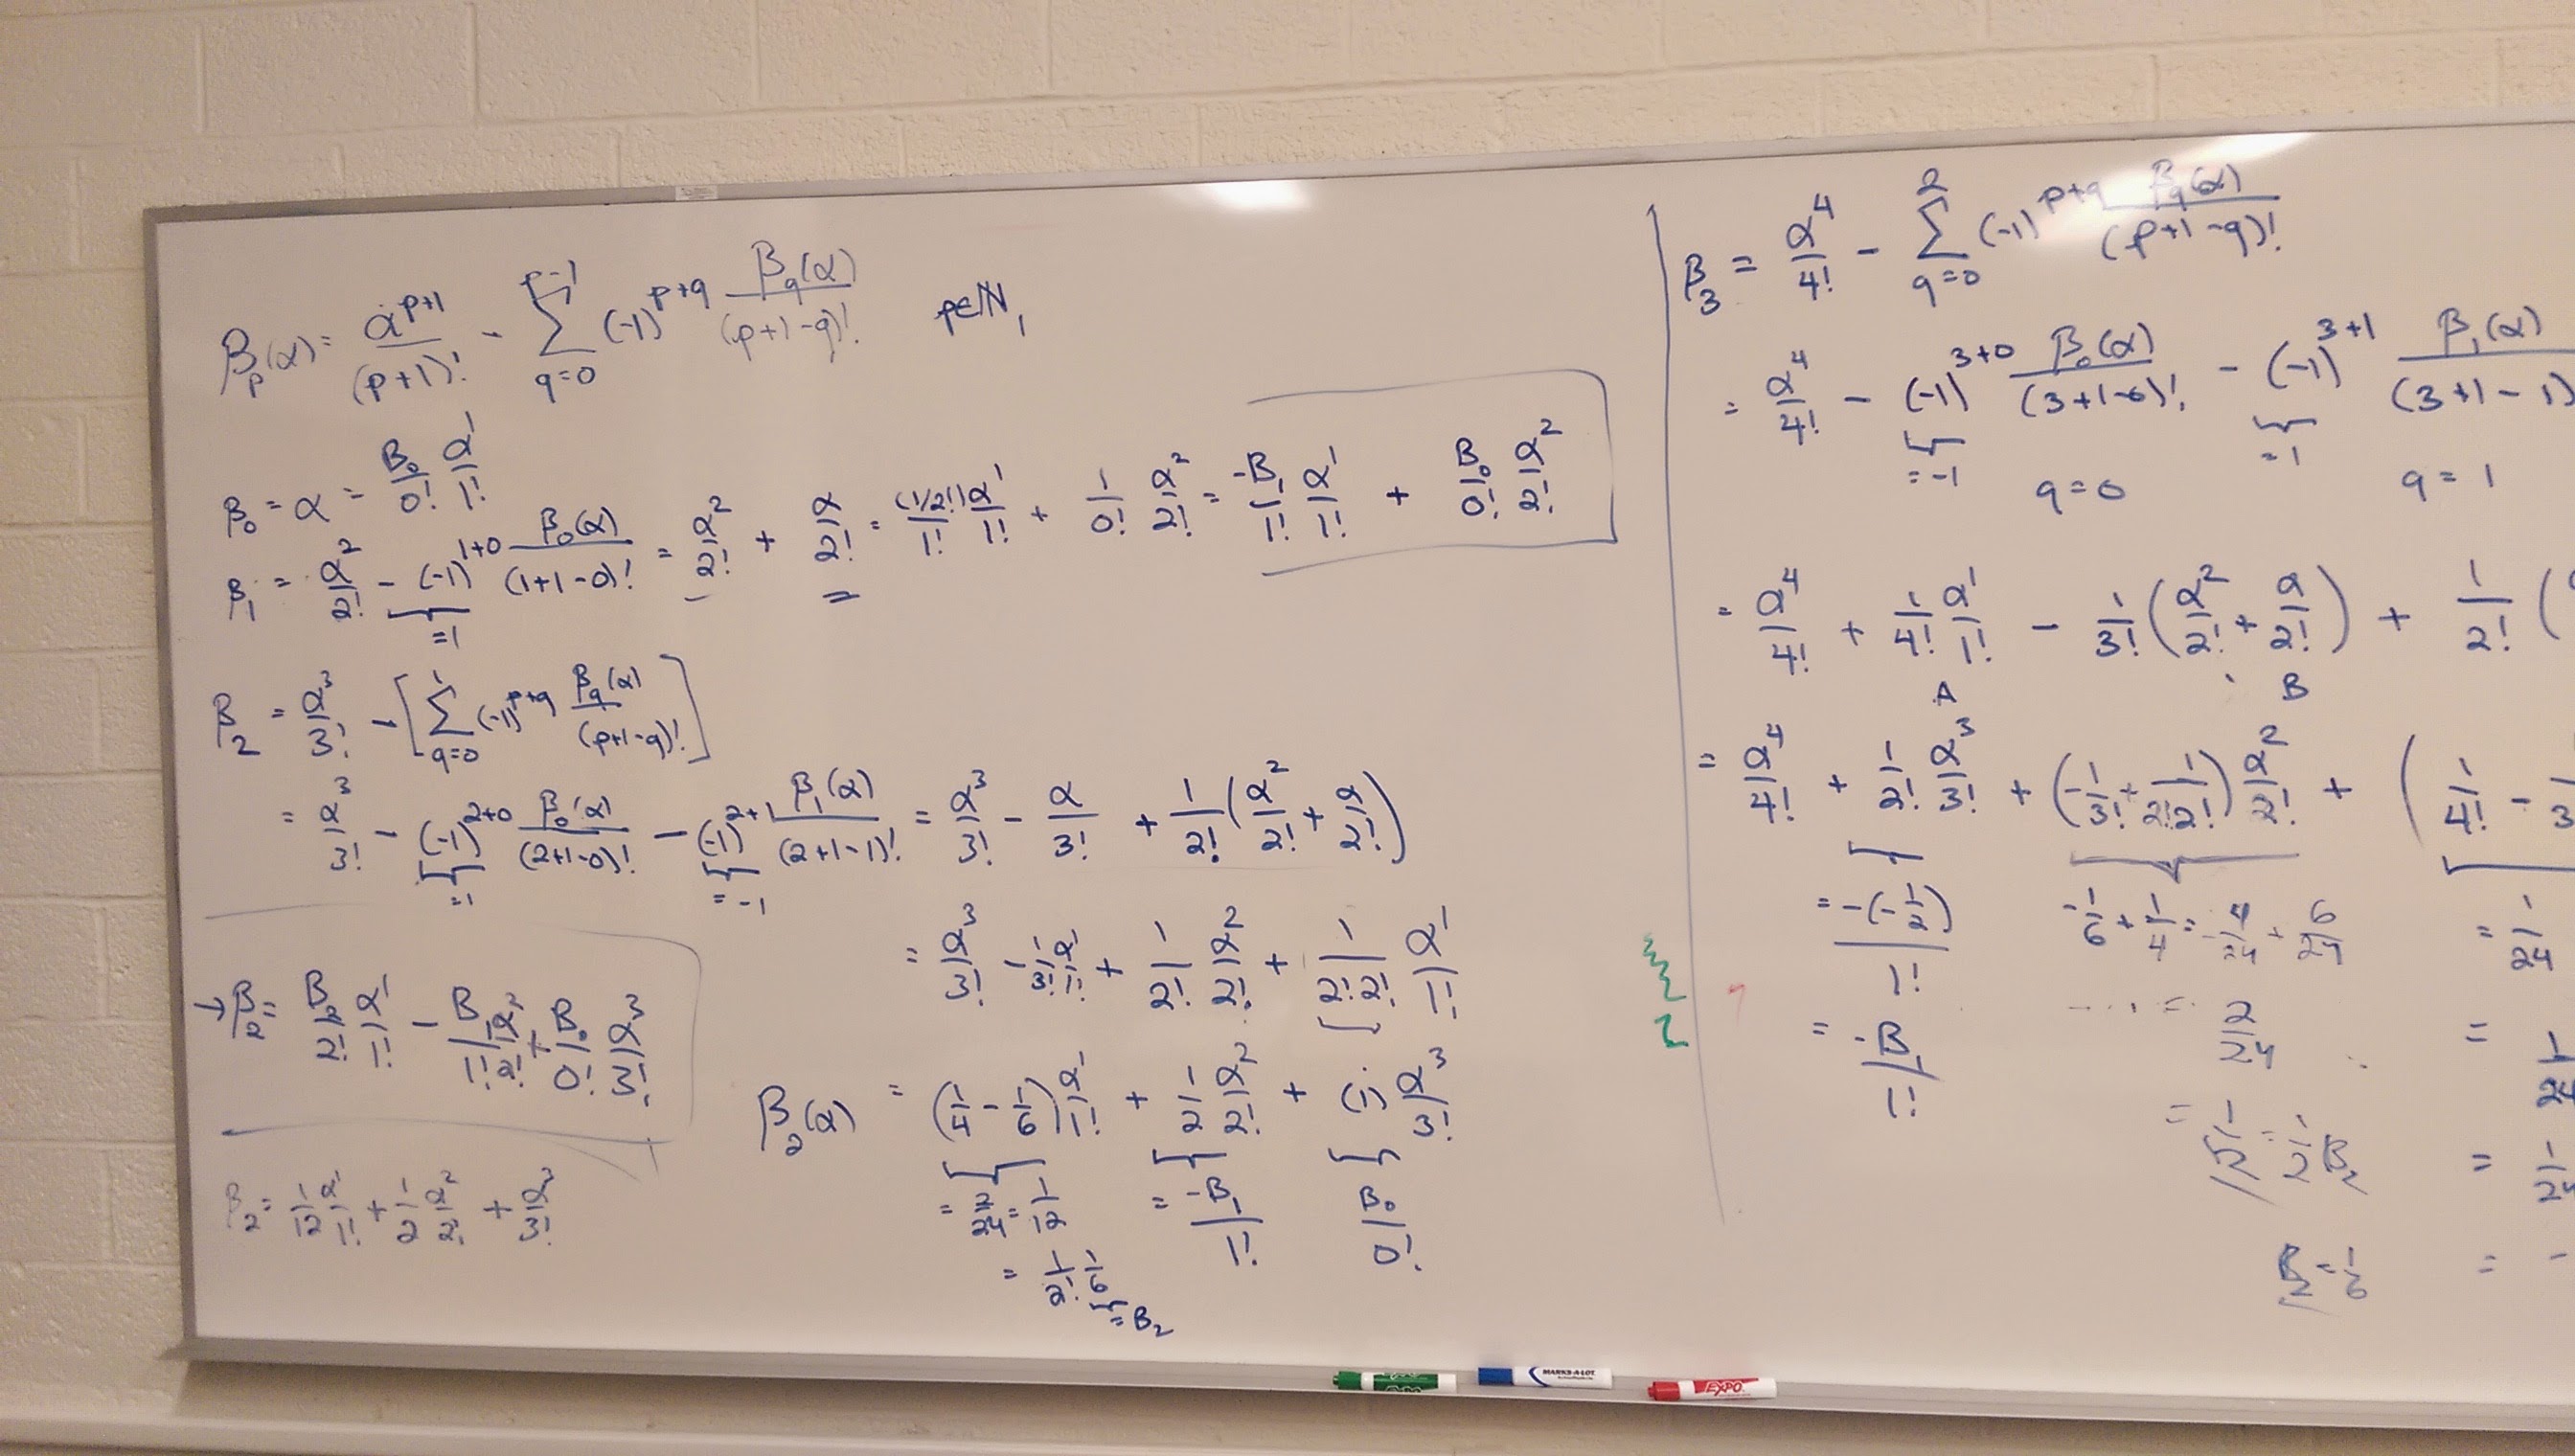 β_p(α) = α^{p+1}/(p+1)! - Σ_{q=0}^{p-1} (-1)^{p+q} β_q(α)/(p+1-q)!   p∈ℕ_1
β_0 = α = B_0/0! α^1/1!
β_1 = α^2/2! - (-1)^{1+0} β_0(α)/(1+1-0)! = α^2/2! + α/2! = (1/2!)/1! α^1/1! + 1/0! α^2/2! = -B_1/1! α^1/1! + B_0/0! α^2/2!
=1
β_2 = α^3/3! - [Σ_{q=0}^{1} (-1)^{p+q} β_q(α)/(p+1-q)!]
= α^3/3! - (-1)^{2+0} β_0(α)/(2+1-0)! - (-1)^{2+1} β_1(α)/(2+1-1)! = α^3/3! - α/3! + 1/2! (α^2/2! + α/2!)
=1   =-1
= α^3/3! - 1/3! α^1/1! + 1/2! α^2/2! + 1/2!2! α^1/1!
→ β_2 = B_2/2! α^1/1! - B_1/1! α^2/2! + B_0/0! α^3/3!
β_2(α) = (1/4 - 1/6) α^1/1! + 1/2 α^2/2! + (1) α^3/3!
= 2/24 = 1/12   = -B_1/1!   B_0/0!
= 1/2! 1/6
= B_2
β_2 = 1/12 α^1/1! + 1/2 α^2/2! + α^3/3!
β_3 = α^4/4! - Σ_{q=0}^{2} (-1)^{p+q} β_q(α)/(p+1-q)!
= α^4/4! - (-1)^{3+0} β_0(α)/(3+1-0)! - (-1)^{3+1} β_1(α)/(3+1-1)
=-1   =1
q=0   q=1
= α^4/4! + 1/4! α^1/1! - 1/3! (α^2/2! + α/2!) + 1/2! (
A   B
= α^4/4! + 1/2! α^3/3! + (-1/3! + 1/2!2!) α^2/2! + (1/4! -
= -(-1/2)/1!   -1/6 + 1/4 = -4/24 + 6/24   = 1/24
= -B_1/1!   ... = 2/24   = 1/24
= 1/12 = 1/2! B_2   = 1/24
B_2 = 1/6   =
MARKS-A-LOT
EXPO